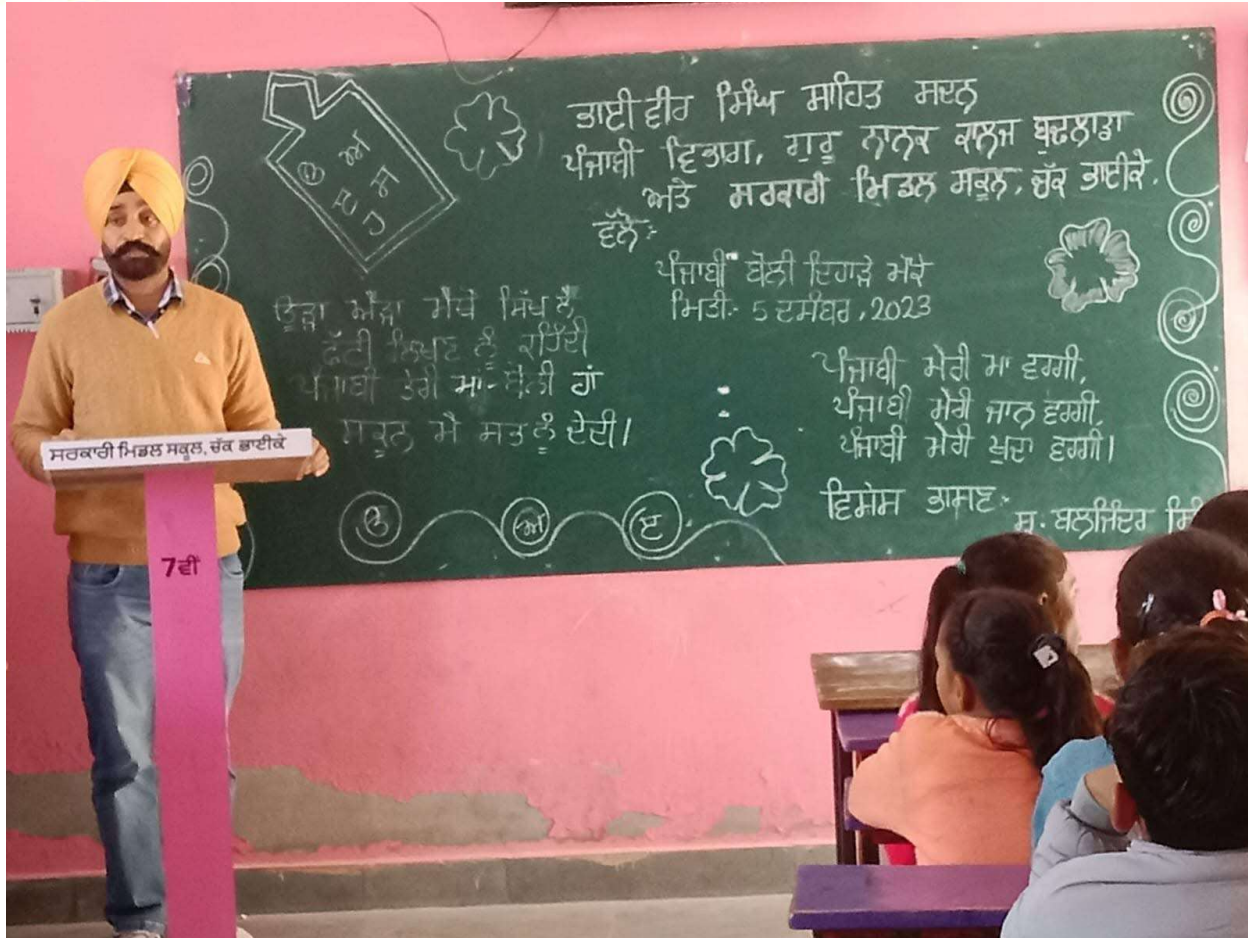 ਭਾਈ ਵੀਰ ਸਿੰਘ ਸਾਹਿਤ ਸਦਨ
ਪੰਜਾਬੀ ਵਿਭਾਗ, ਗੁਰੂ ਨਾਨਕ ਕਾਲਜ ਬੁਢਲਾਡਾ
ਅਤੇ ਸਰਕਾਰੀ ਮਿਡਲ ਸਕੂਲ, ਚੱਕ ਭਾਈਕੇ.
ਵੱਲੋਂ:-
ਪੰਜਾਬੀ ਬੋਲੀ ਦਿਹਾੜੇ ਮੌਕੇ
ਮਿਤੀ:- 5 ਦਸੰਬਰ, 2023
ੳ ਅ
ੲ ਸ
ਹ
ਊੜਾ ਐੜਾ ਮੈਥੋਂ ਸਿੱਖ ਲੈ
ਫੱਟੀ ਲਿਖਣ ਨੂੰ ਕਹਿੰਦੀ
ਪੰਜਾਬੀ ਤੇਰੀ ਮਾਂ-ਬੋਲੀ ਹਾਂ
ਸਕੂਨ ਮੈਂ ਸਭ ਨੂੰ ਦੇਂਦੀ।
ਪੰਜਾਬੀ ਮੇਰੀ ਮਾਂ ਵਰਗੀ,
ਪੰਜਾਬੀ ਮੇਰੀ ਜਾਨ ਵਰਗੀ,
ਪੰਜਾਬੀ ਮੇਰੀ ਖ਼ੁਦਾ ਵਰਗੀ।
ਵਿਸ਼ੇਸ਼ ਭਾਸ਼ਣ:-
ਸ. ਬਲਜਿੰਦਰ
ੳ ਅ ੲ
ਸਰਕਾਰੀ ਮਿਡਲ ਸਕੂਲ, ਚੱਕ ਭਾਈਕੇ
7ਵੀਂ